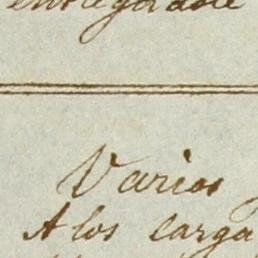 entregandole
Varios
A los carga